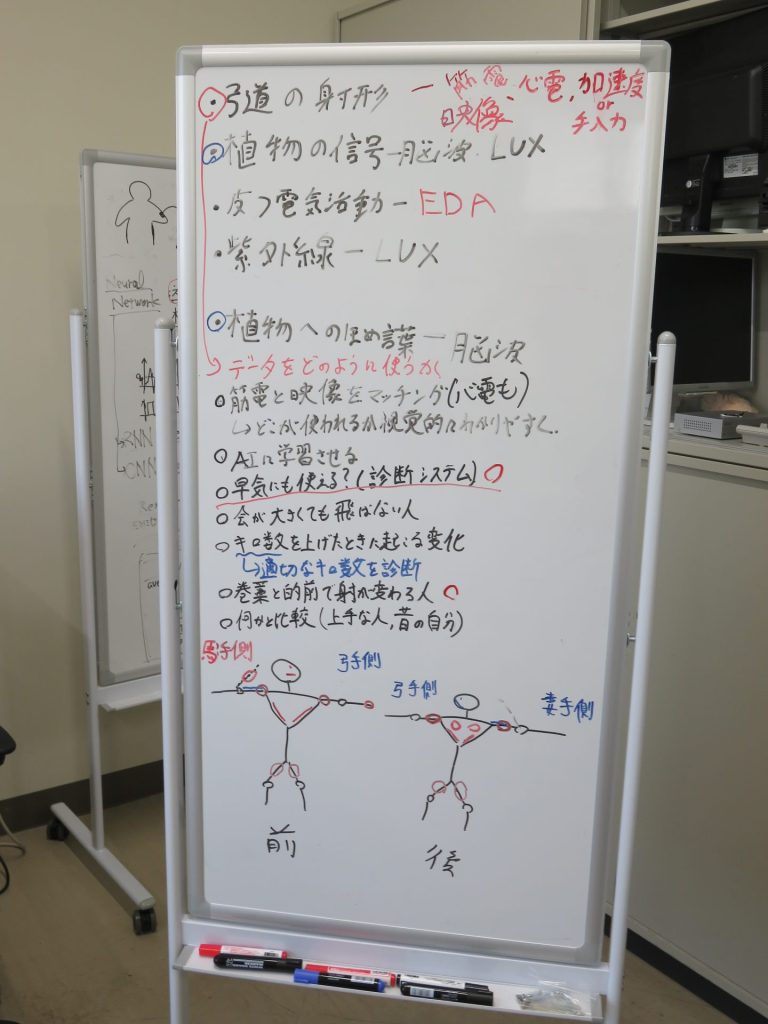 ・弓道の射形 ー 筋電、心電、加速度
映像 or
手入力
・植物の信号 ー 脳波、LUX
・皮フ電気活動 ー EDA
・紫外線 ー LUX
・植物へのほめ言葉 ー 脳波
データをどのように使うか
○筋電と映像をマッチング(心電も)
↳どこが使われるか視覚的にわかりやすく
○AIに学習させる
○早気にも使える?(診断システム)○
○会が大きくても飛ばない人
○キロ数を上げたときに起こる変化
↳適切なキロ数を診断
○巻藁と的前で射が変わる人 ○
○何かと比較(上手な人,昔の自分)
馬手側 弓手側
弓手側 妻手側
前 後
Neural
Network
RNN
CNN